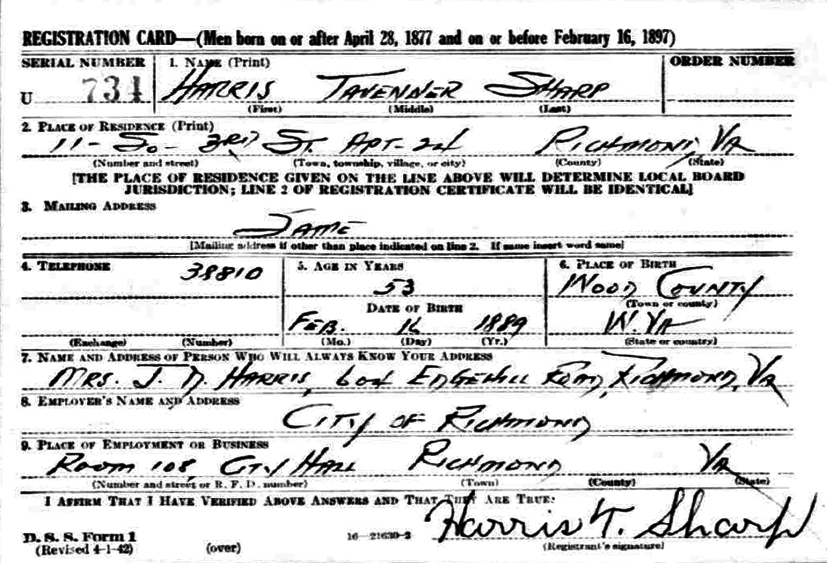 REGISTRATION CARD—(Men born on or after April 28, 1877 and on or before February 16, 1897)
SERIAL NUMBER 1. NAME (Print) ORDER NUMBER
U 734 HARRIS TAVENNER SHARP
(First) (Middle) (Last)
2. PLACE OF RESIDENCE (Print)
11 - SO - 3RD ST. APT-24 RICHMOND, VA
(Number and street) (Town, township, village, or city) (County) (State)
[THE PLACE OF RESIDENCE GIVEN ON THE LINE ABOVE WILL DETERMINE LOCAL BOARD
JURISDICTION; LINE 2 OF REGISTRATION CERTIFICATE WILL BE IDENTICAL]
3. MAILING ADDRESS
SAME
[Mailing address if other than place indicated on line 2. If same insert word same]
4. TELEPHONE 5. AGE IN YEARS 6. PLACE OF BIRTH
38810 53 WOOD COUNTY
DATE OF BIRTH (Town or county)
FEB. 16 1889 W. VA
(Exchange) (Number) (Mo.) (Day) (Yr.) (State or country)
7. NAME AND ADDRESS OF PERSON WHO WILL ALWAYS KNOW YOUR ADDRESS
MRS. J. D. HARRIS, 604 EDGEHILL ROAD, RICHMOND, VA
8. EMPLOYER'S NAME AND ADDRESS
CITY OF RICHMOND
9. PLACE OF EMPLOYMENT OR BUSINESS
ROOM 108, CITY HALL RICHMOND VA
(Number and street or R. F. D. number) (Town) (County) (State)
I AFFIRM THAT I HAVE VERIFIED ABOVE ANSWERS AND THAT THEY ARE TRUE:
Harris T. Sharp
D. S. S. Form 1 16—21630-2
(Revised 4-1-42) (over) (Registrant's signature)